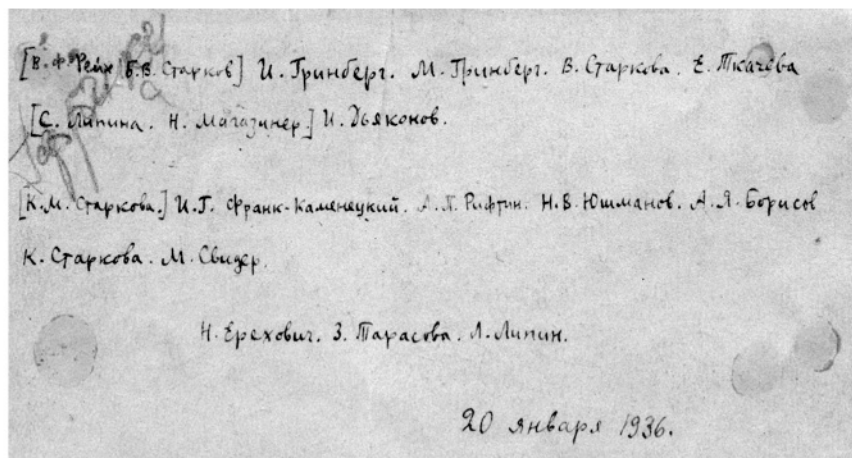 [В.Ф. Рейх [Б.В. Старков] И. Гринберг. М. Гринберг. В. Старкова. Е. Ткачева
[С. Липина. Н. Магазинер.] И. Дьяконов.
[К.М. Старкова.] И.Г. Франк-Каменецкий. А.П. Рифтин. Н.В. Юшманов. А.Я. Борисов
К. Старкова. М. Свидер.
Н. Ерехович. З. Тарасова. Л. Липин.
20 января 1936.